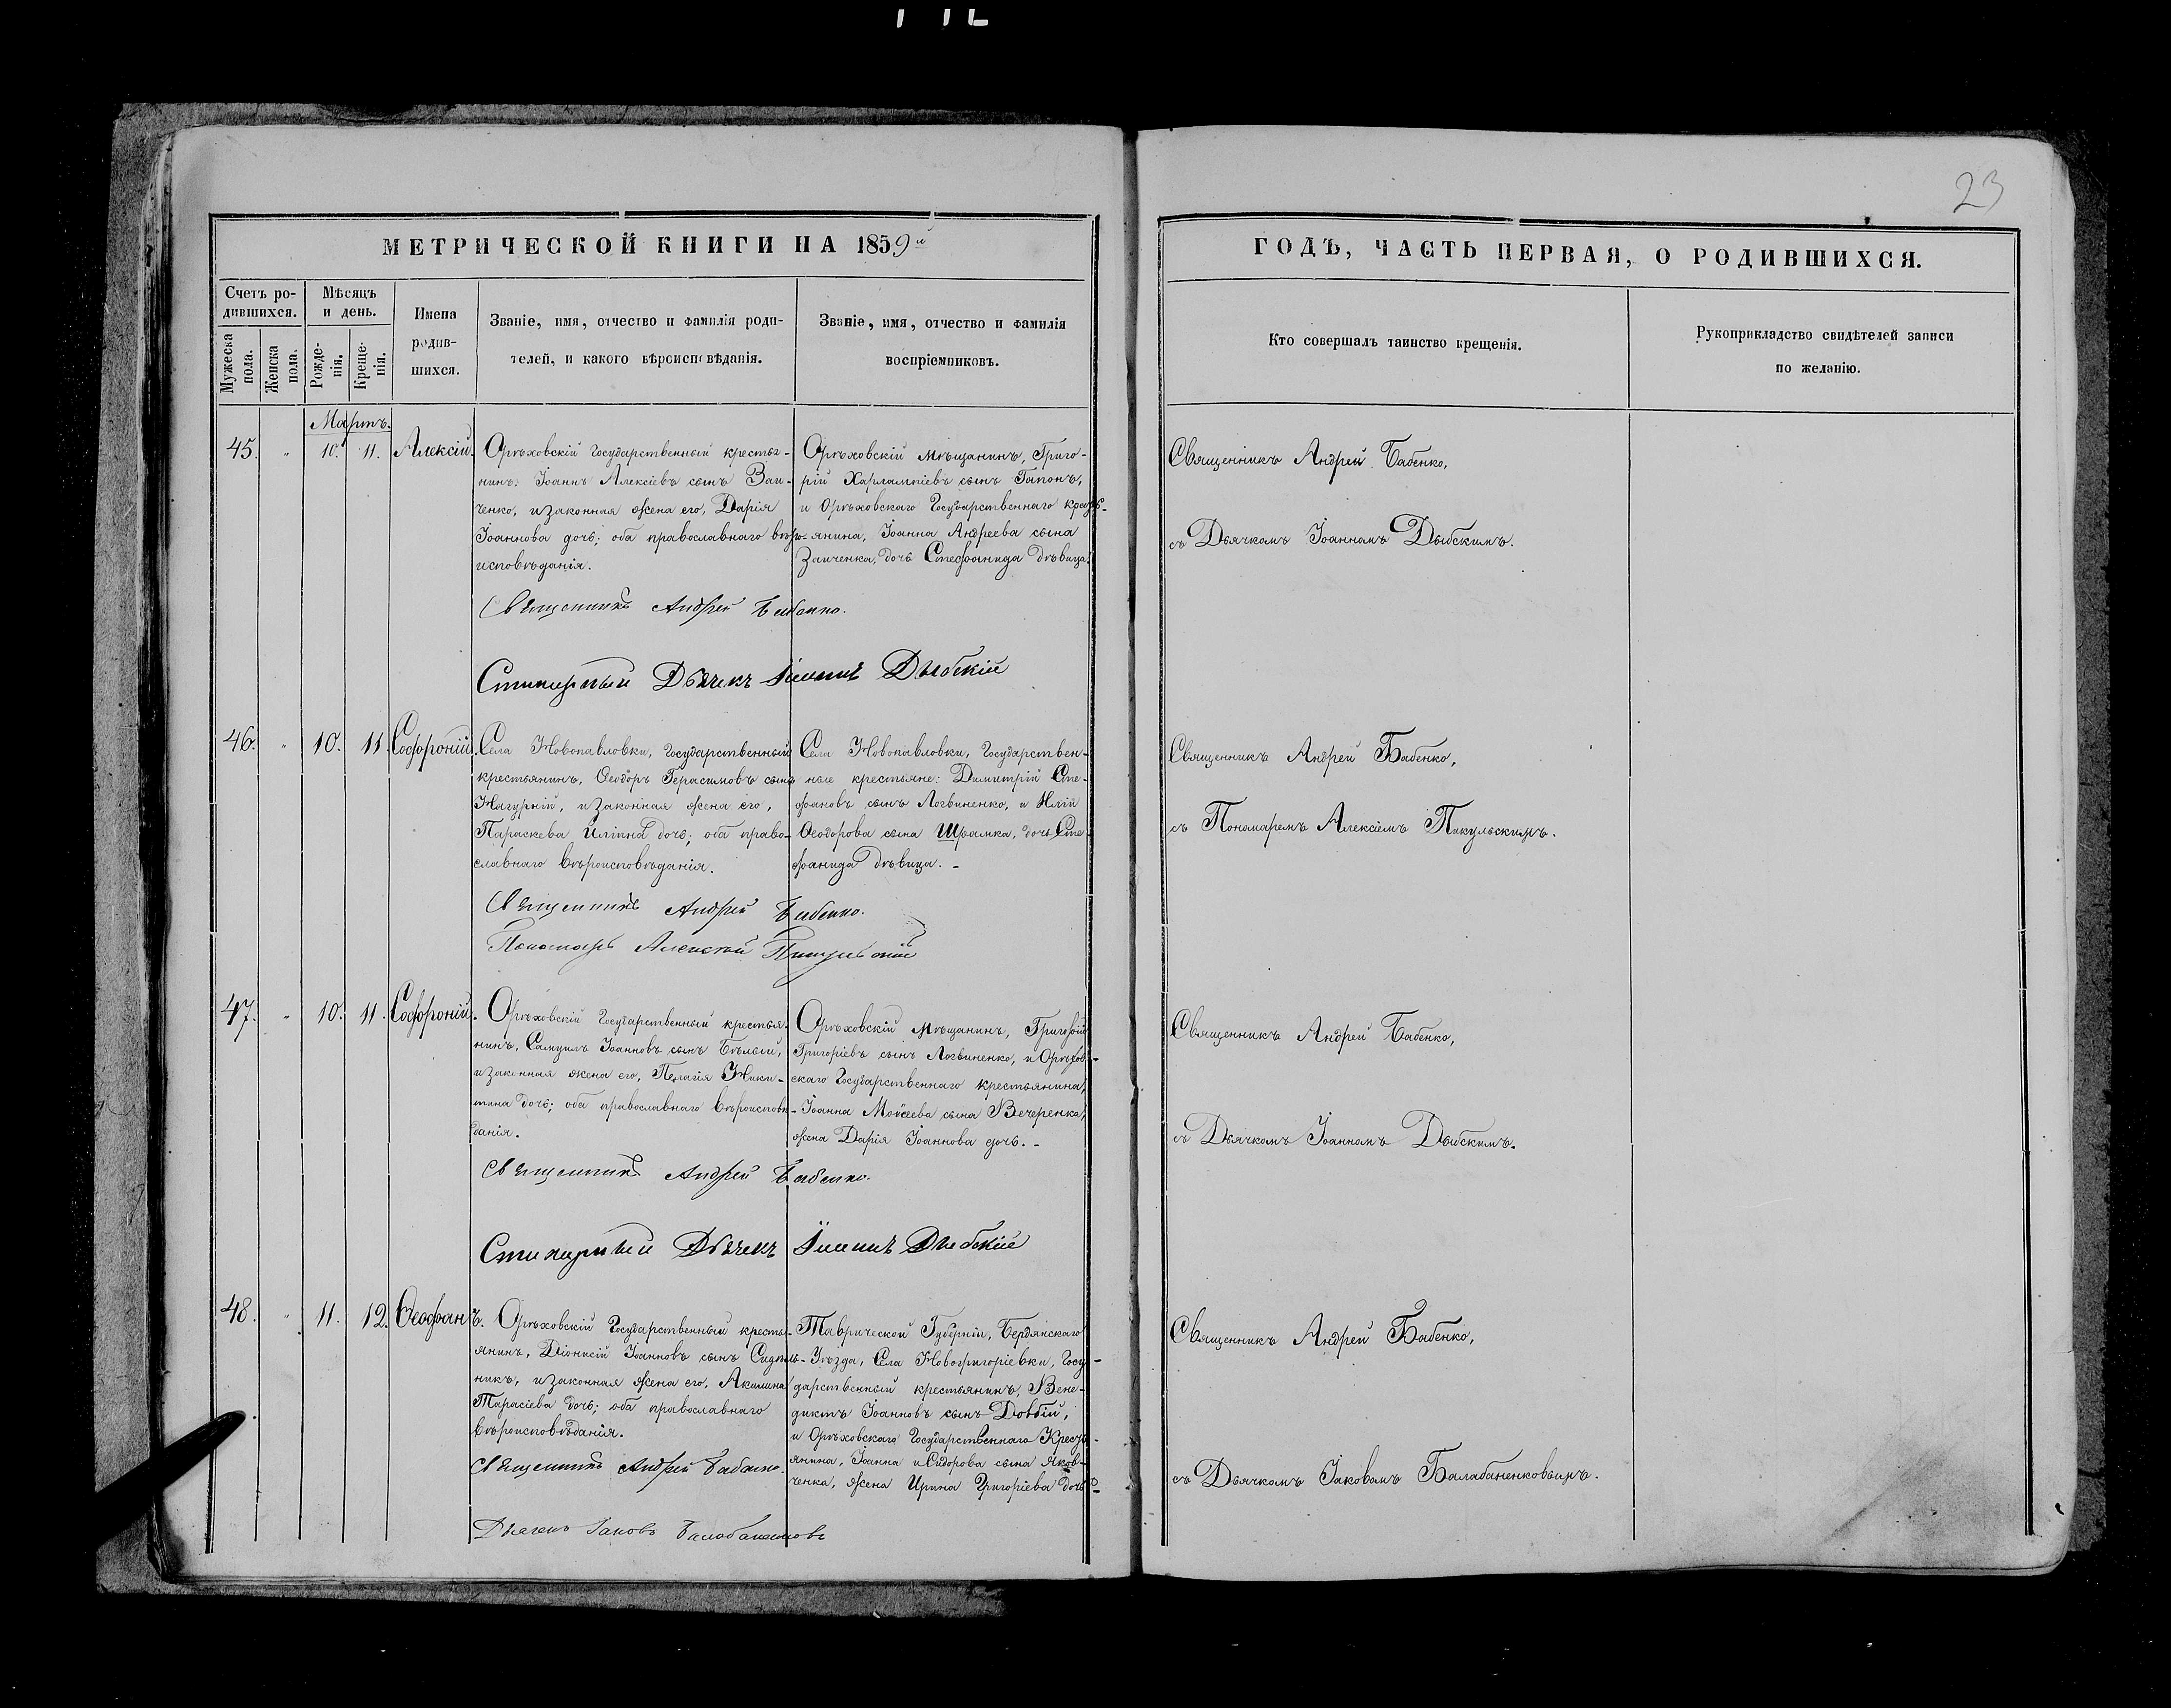 23
МЕТРИЧЕСКОЙ КНИГИ НА 1859й
ГОДЪ, ЧАСТЬ ПЕРВАЯ, О РОДИВШИХСЯ.
Счетъ ро-
дившихся.
Мужеска
пола.
Женска
пола.
Мѣсяцъ
и день.
Рожде-
нія.
Креще-
нія.
Имена
родив-
шихся.
Званіе, имя, отчество и фамилія роди-
телей, и какого вѣроисповѣданія.
Званіе, имя, отчество и фамилія
воспріемниковъ.
Кто совершалъ таинство крещенія.
Рукоприкладство свидѣтелей записи
по желанію.
Мартъ.
45. " 10. 11. Алексій.
Орѣховскій Государственный крестья-
нинъ, Іоаннъ Алексіевъ сынъ Заи-
ченко, и законная жена его, Дарія
Іоаннова дочь; оба православнаго вѣро-
исповѣданія.
Священникъ Андрей Бабенко.
Стихарный Дьячекъ Іоаннъ Дыбскій
Орѣховскій мѣщанинъ, Григо-
рій Харлампіевъ сынъ Гапонъ,
и Орѣховскаго Государственнаго кресть-
янина, Іоанна Андреева сына
Заиченка, дочь Стефанида дѣвица.
Священникъ Андрей Бабенко,
съ Дьячкомъ Іоанномъ Дыбскимъ.
46. " 10. 11. Софроній.
Села Новопавловки, Государственный
крестьянинъ, Ѳеодоръ Герасимовъ сынъ
Нагурній, и законная жена его,
Параскева Иліина дочь; оба право-
славнаго вѣроисповѣданія.
Священникъ Андрей Бабенко.
Пономарь Алексій Пикульскій
Села Новопавловки, Государствен-
ные крестьяне: Димитрій Сте-
фановъ сынъ Логвиненко, и Иліи
Ѳеодорова сына Шрамка, дочь Сте-
фанида дѣвица. -
Священникъ Андрей Бабенко,
съ Пономаремъ Алексіемъ Пикульскимъ.
47. " 10. 11. Софроній.
Орѣховскій Государственный крестья-
нинъ, Самуилъ Іоанновъ сынъ Бѣлый,
и законная жена его, Пелагія Ники-
тина дочь; оба православнаго вѣроисповѣ-
данія.
Священникъ Андрей Бабенко.
Стихарный Дьячекъ Іоаннъ Дыбскій
Орѣховскій мѣщанинъ, Григорій
Григоріевъ сынъ Логвиненко, и Орѣхов-
скаго Государственнаго крестьянина,
Іоанна Моисеева сына Вечеренка,
жена Дарія Іоаннова дочь. -
Священникъ Андрей Бабенко,
съ Дьячкомъ Іоанномъ Дыбскимъ.
48. " 11. 12. Ѳеофанъ.
Орѣховскій Государственный кресть-
янинъ, Діонисій Іоанновъ сынъ
никъ, и законная жена его, Акилина
Тарасіева дочь; оба православнаго
вѣроисповѣданія.
Священникъ Андрей Бабенко.
Дьячекъ Іаковъ
Таврической Губерніи, Бердянскаго
Уѣзда, Села Новогригоріевки, Госу-
дарственный крестьянинъ, Вене-
диктъ Іоанновъ сынъ Довбій,
и Орѣховскаго Государственнаго Кресть-
янина, Іоанна Исидорова сына Яков-
ченка, жена Ирина Григоріева дочь
Священникъ Андрей Бабенко,
съ Дьячкомъ Іаковомъ Балабаненковымъ.